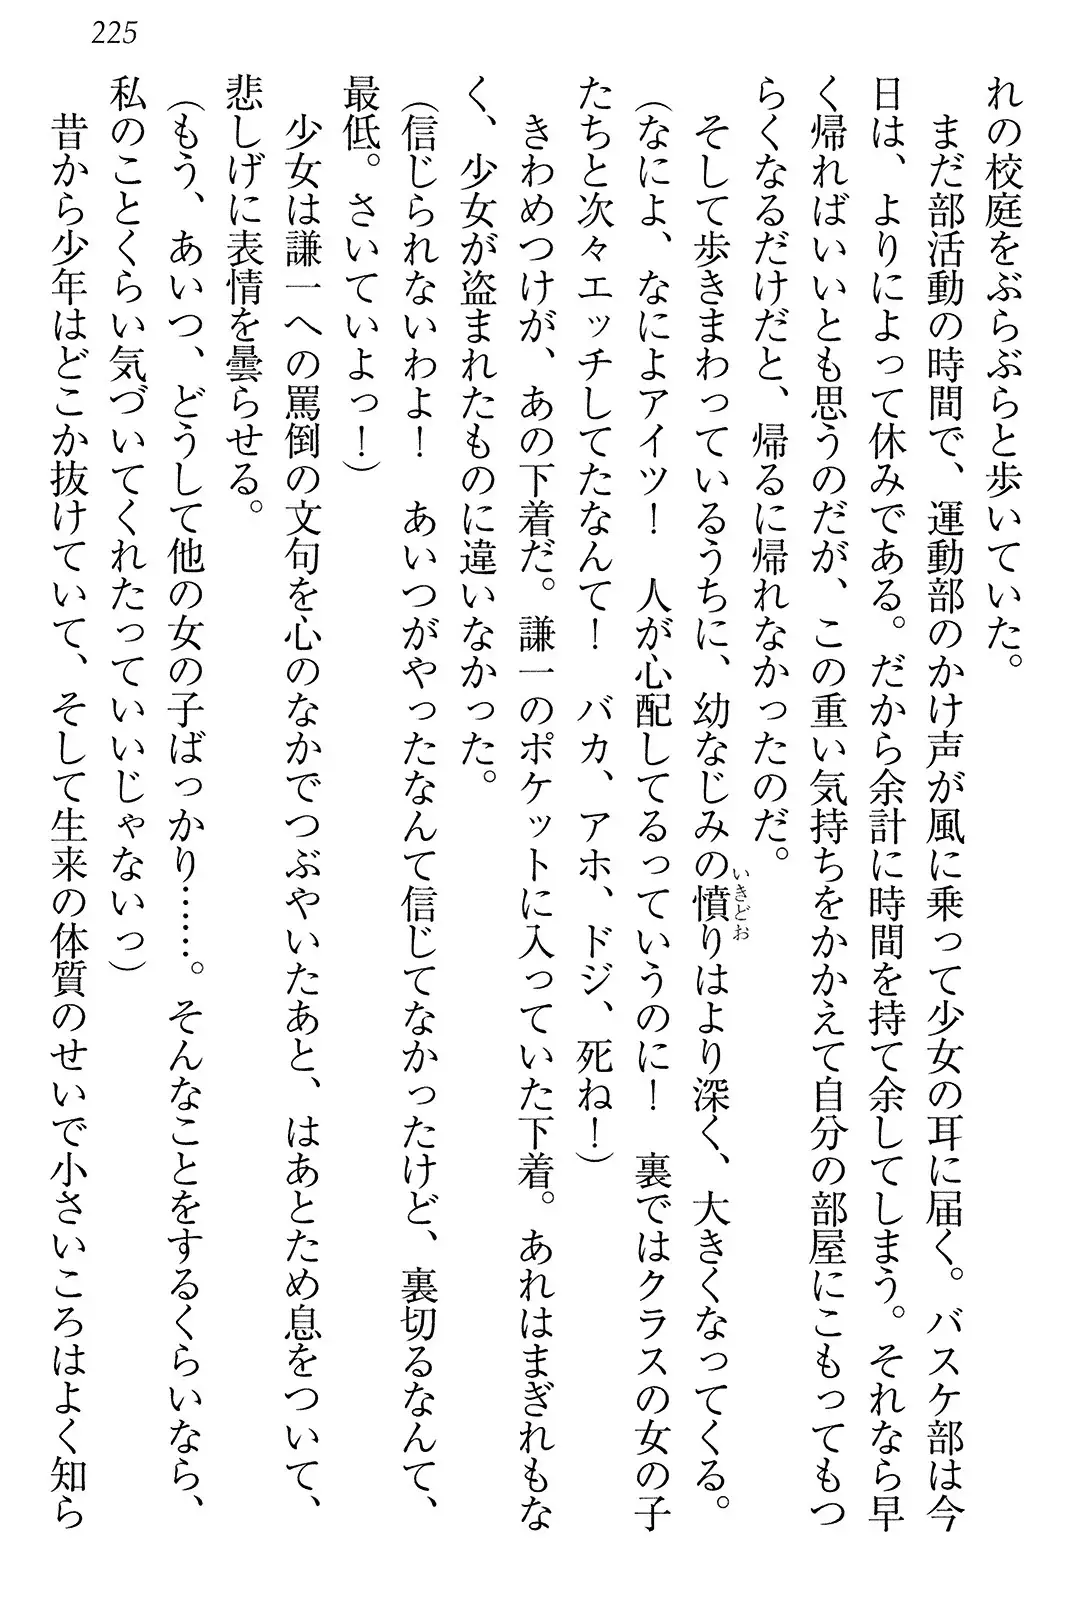 225
れの校庭をぶらぶらと歩いていた。
まだ部活動の時間で、運動部のかけ声が風に乗って少女の耳に届く。バスケ部は今
日は、よりによって休みである。だから余計に時間を持て余してしまう。それなら早
く帰ればいいとも思うのだが、この重い気持ちをかかえて自分の部屋にこもってもつ
らくなるだけだと、帰るに帰れなかったのだ。
そして歩きまわっているうちに、幼なじみの憤りはより深く、大きくなってくる。
いきどお
（なによ、なによアイツ！　人が心配してるっていうのに！　裏ではクラスの女の子
たちと次々エッチしてたなんて！　バカ、アホ、ドジ、死ね！）
きわめつけが、あの下着だ。謙一のポケットに入っていた下着。あれはまぎれもな
く、少女が盗まれたものに違いなかった。
（信じられないわよ！　あいつがやったなんて信じてなかったけど、裏切るなんて、
最低。さいていよっ！）
少女は謙一への罵倒の文句を心のなかでつぶやいたあと、はあとため息をついて、
悲しげに表情を曇らせる。
（もう、あいつ、どうして他の女の子ばっかり……。そんなことをするくらいなら、
私のことくらい気づいてくれたっていいじゃないっ）
昔から少年はどこか抜けていて、そして生来の体質のせいで小さいころはよく知ら